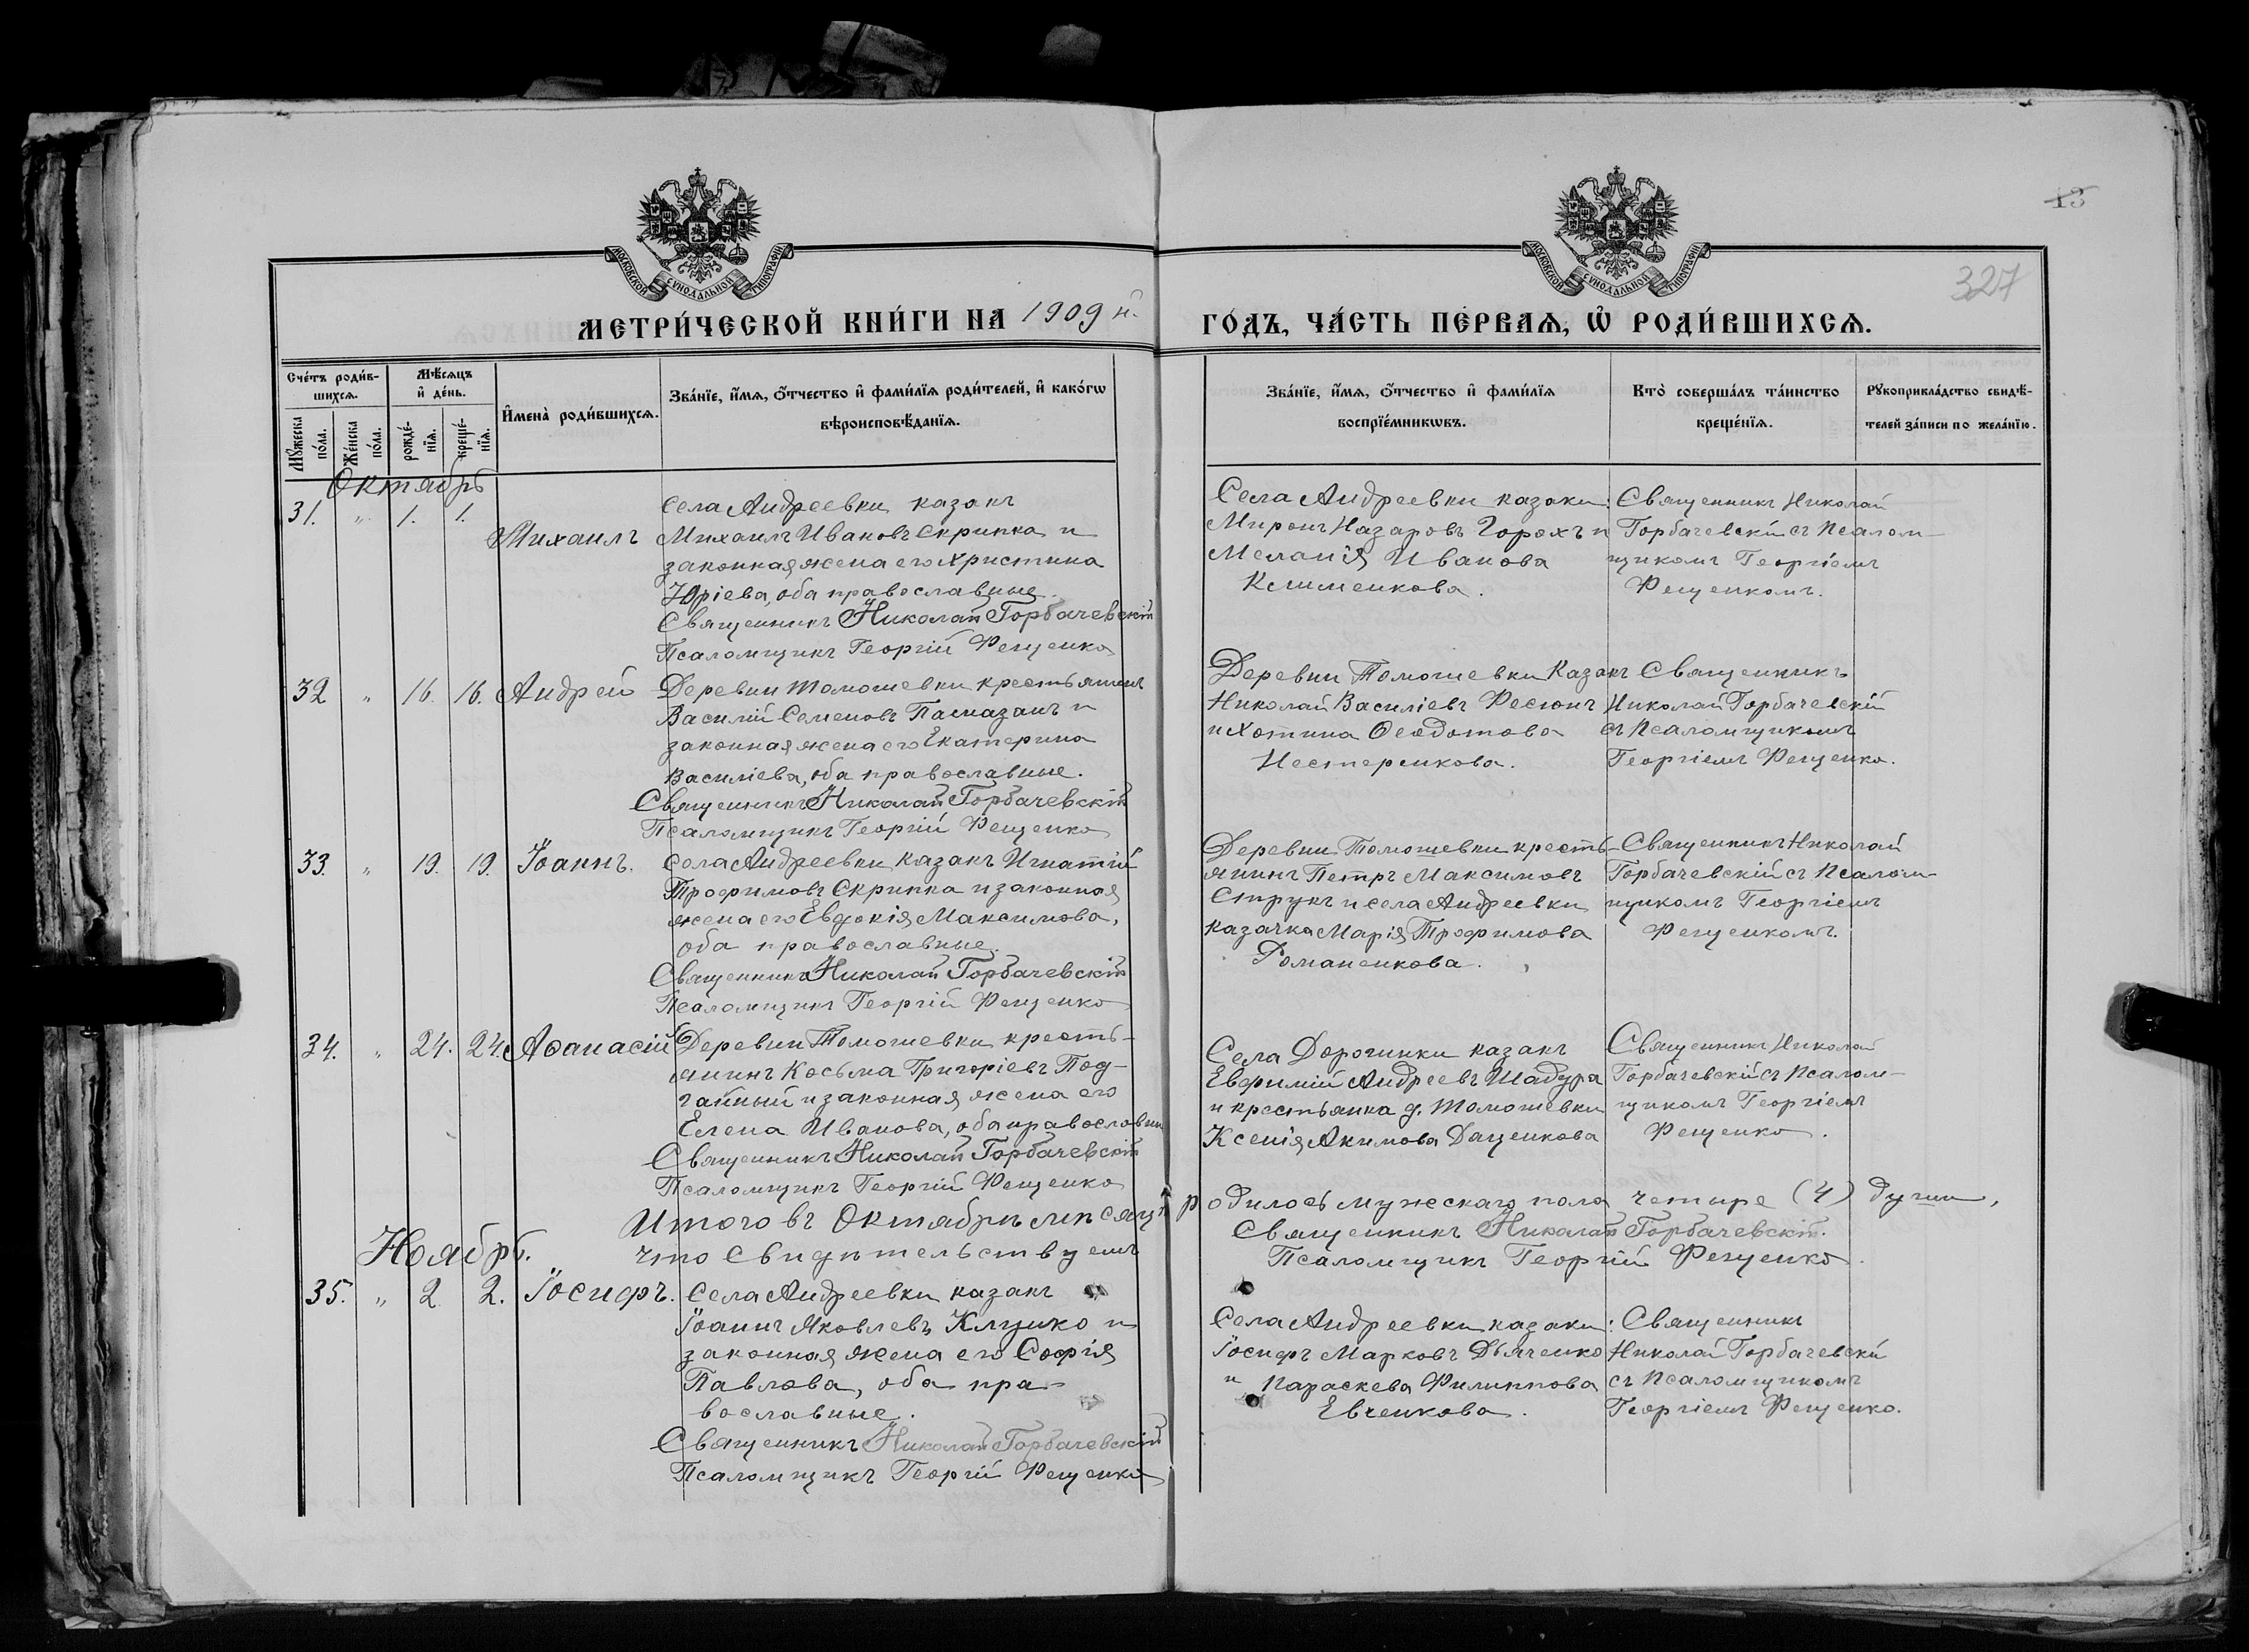 13
327
МОСКОВСКОЙ СУНОДАЛЬНОЙ ТИПОГРАФІИ
МОСКОВСКОЙ СУНОДАЛЬНОЙ ТИПОГРАФІИ
МЕТРИ́ЧЕСКОЙ КНИ́ГИ НА 1909 й.
ГО́ДЪ, ЧА́СТЬ ПЕ́РВАѦ, Ѽ РОДИ́ВШИХСѦ.
Сче́тъ роди́в-
шихсѧ.
Мꙋ́жеска по́ла.
Же́нска по́ла.
Мѣ́сѧцъ
и҆ де́нь.
рожде́-
нїѧ.
креще́-
нїѧ.
И҆мена̀ роди́вшихсѧ.
Зва́нїе, и҆́мѧ, ѻ҆́тчество и҆ фами́лїѧ роди́телей, и҆ како́гѡ
вѣроисповѣ́данїѧ.
Зва́нїе, и҆́мѧ, ѻ҆́тчество и҆ фами́лїѧ
воспрїе́мникѡвъ.
Кто̀ соверша́лъ та́инство
креще́нїѧ.
Рꙋкоприкла́дство свидѣ́-
телей за́писи по жела́нїю.
Октябрь
31. " 1. 1.
Михаилъ
Села Андреевки казакъ
Михаилъ Ивановъ Скрипка и
законная жена его Христина
Юріева, оба православные.
Священникъ Николай Горбачевскій
Псаломщикъ Георгій Рещенко
Села Андреевки казаки:
Миронъ Назаровъ Горохъ и
Меланія Иванова
Клименкова.
Священникъ Николай
Горбачевскій съ Псалом-
щикомъ Георгіемъ
Рещенкомъ.
32 " 16. 16. Андрей
Деревни Томашевки крестьянинъ
Василій Семеновъ и
законная жена его Екатерина
Василіева, оба православные.
Священникъ Николай Горбачевскій
Псаломщикъ Георгій Рещенко
Деревни Томашевки Казакъ
Николай Василіевъ Ресюнъ
и Хотина Ѳеодотова
Нестеренкова.
Священникъ
Николай Горбачевскій
съ Псаломщикомъ
Георгіемъ Рещенко.
33. " 19. 19. Іоаннъ.
Села Андреевки казакъ Игнатій
Трофимовъ Скрипка и законная
жена его Евдокія Максимова,
оба православные.
Священникъ Николай Горбачевскій
Псаломщикъ Георгій Рещенко
Деревни Томашевки кресть-
янинъ Петръ Максимовъ
Струкъ и села Андреевки
казачка Марія Трофимова
Романенкова.
Священникъ Николай
Горбачевскій съ Псалом-
щикомъ Георгіемъ
Рещенкомъ.
34. " 24. 24. Аѳанасій
Деревни Томашевки кресть-
янинъ Косьма Григоріевъ Под-
гайный и законная жена его
Елена Иванова, оба православны
Священникъ Николай Горбачевскій
Псаломщикъ Георгій Рещенко
Села Дорогинки казакъ
Евфимій Андреевъ Шадура
и крестьянка д. Томашевки
Ксенія Акимова Даценкова
Священникъ Николай
Горбачевскій съ Псалом-
щикомъ Георгіемъ
Рещенко.
Итого въ Октябрѣ мѣсяцѣ родилось мужескаго пола четыре (4) души,
что свидѣтельствуемъ
Священникъ Николай Горбачевскій.
Псаломщикъ Георгій Рещенко.
Ноябрь.
35. " 2. 2. Іосифъ.
Села Андреевки казакъ
Іоаннъ Яковлевъ Клушко и
законная жена его Софія
Павлова, оба пра-
вославные.
Священникъ Николай Горбачевскій
Псаломщикъ Георгій Рещенко
Села Андреевки казаки:
Іосифъ Марковъ Дьяченко
и Параскева Филиппова
Евченкова.
Священникъ
Николай Горбачевскій
съ Псаломщикомъ
Георгіемъ Рещенко.